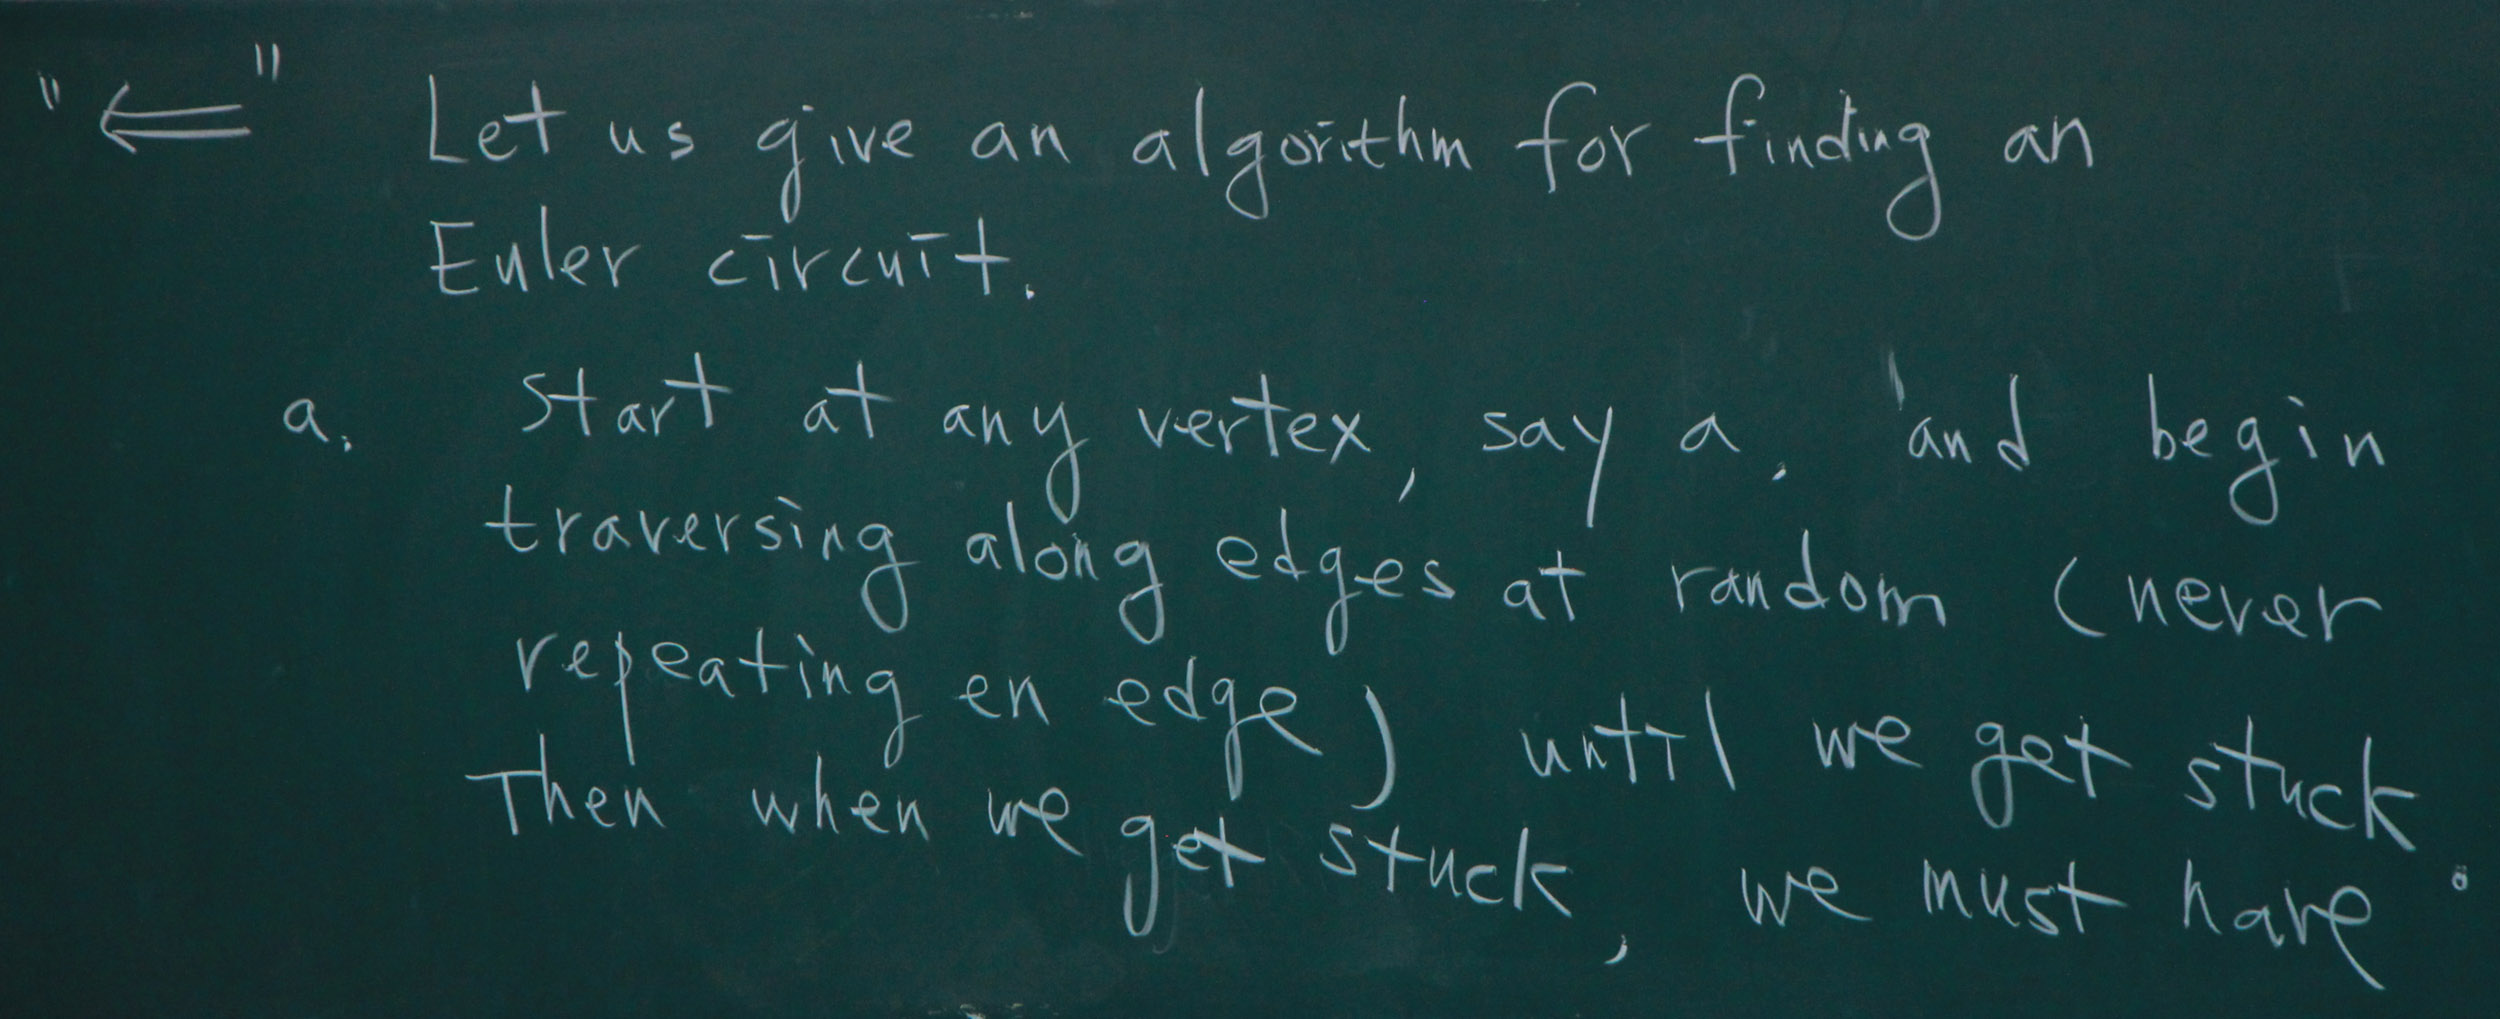 "⇐" Let us give an algorithm for finding an
Euler circuit.
a. Start at any vertex, say a, and begin
traversing along edges at random (never
repeating en edge) until we get stuck.
Then when we get stuck, we must have